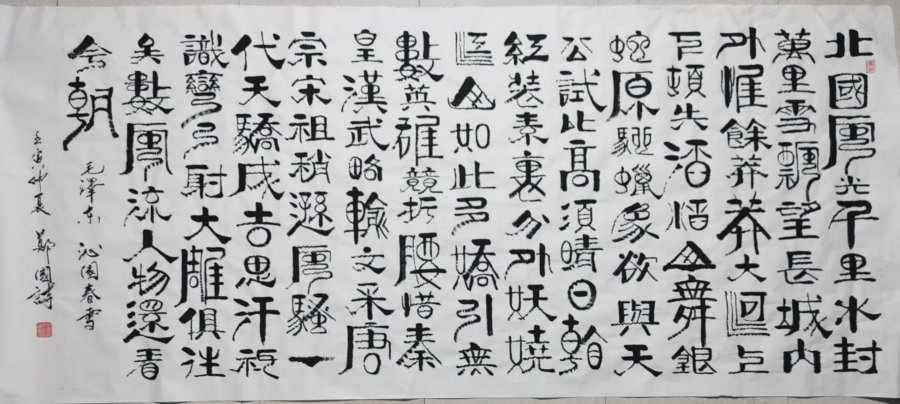 北國風光千里冰封
萬里雪飄望長城內
外惟餘莽莽大河上
下頓失滔滔山舞銀
蛇原馳蠟象欲與天
公試比高須晴日看
紅裝素裹分外妖嬈
江山如此多嬌引無
數英雄競折腰惜秦
皇漢武略輸文采唐
宗宋祖稍遜風騷一
代天驕成吉思汗祇
識彎弓射大雕俱往
矣數風流人物還看
今朝
毛澤東 沁園春雪
壬寅仲夏 鄭國